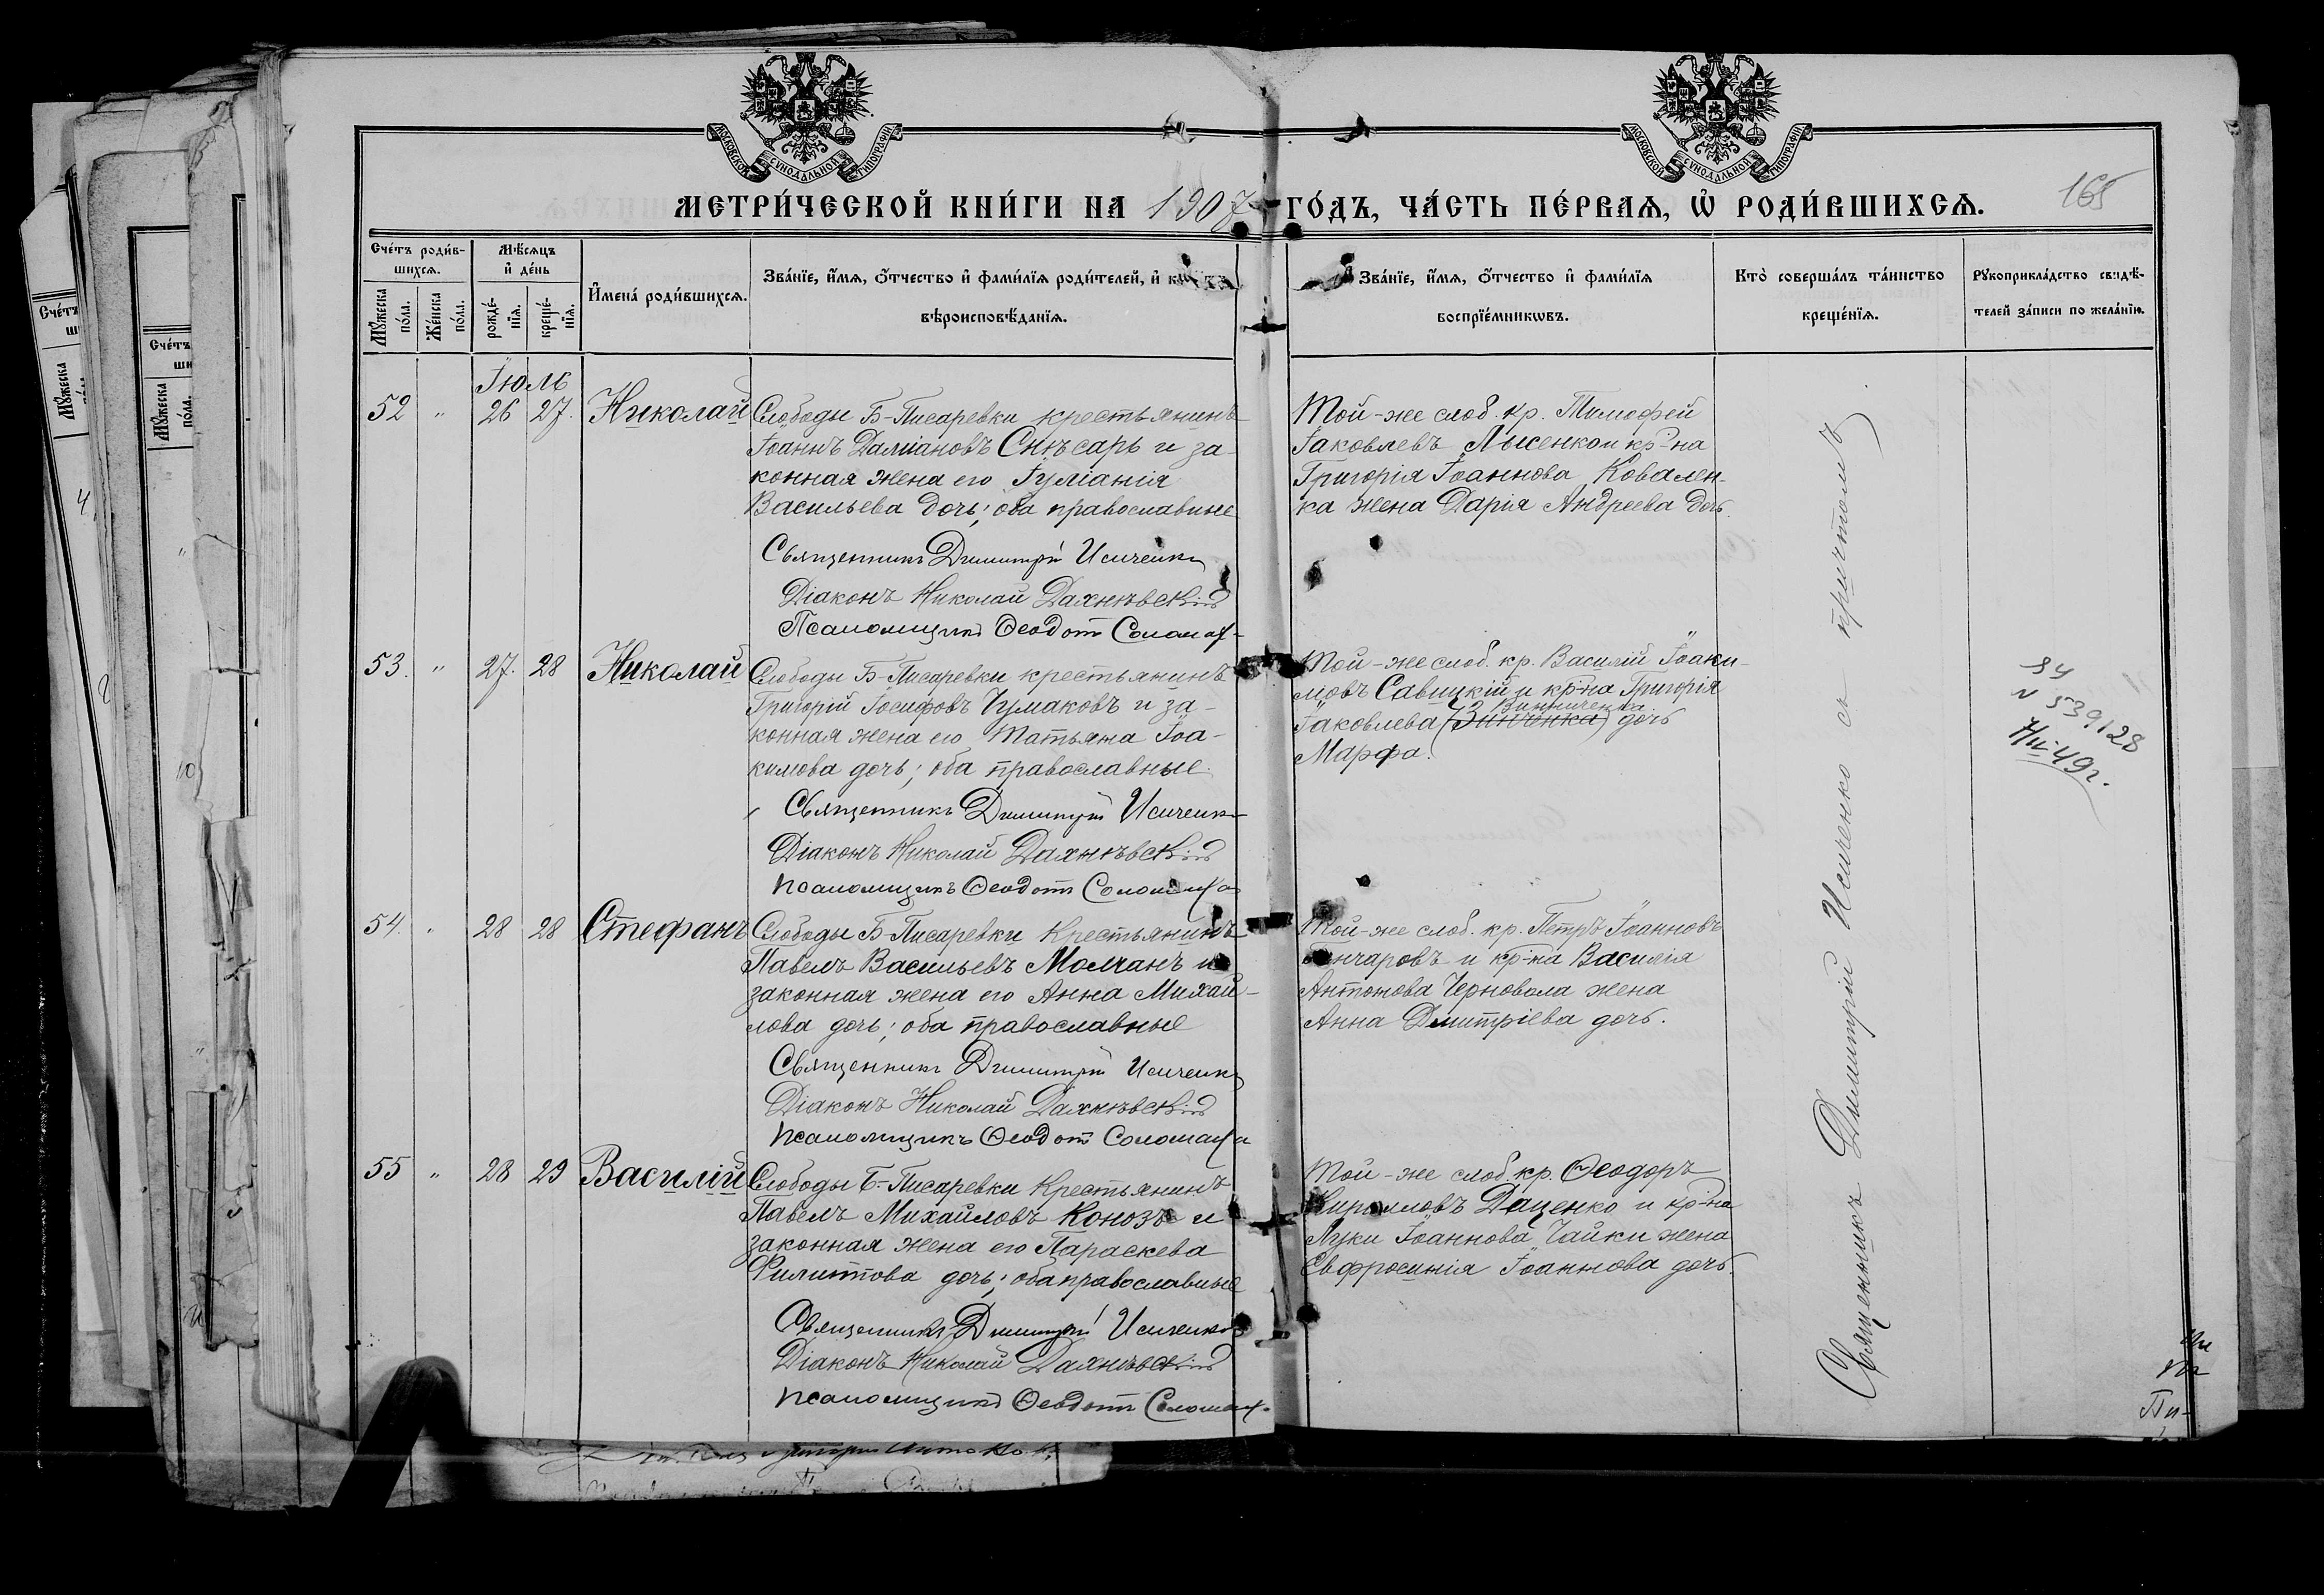 МОСКОВСКОЙ СѴНОДАЛЬНОЙ ТИПОГРАФІИ
МОСКОВСКОЙ СѴНОДАЛЬНОЙ ТИПОГРАФІИ
МЕТРИ́ЧЕСКОЙ КНИ́ГИ НА 1907 ГО́ДЪ, ЧА́СТЬ ПЕ́РВАѦ, Ѡ҆ РОДИ́ВШИХСѦ.
165
Сче́тъ роди́в-
шихсѧ.
Мꙋ́жеска по́ла.
Же́нска по́ла.
Мѣ́сѧцъ
и҆ де́нь
рожде́-
нїѧ.
креще́-
нїѧ.
И҆мена̀ роди́вшихсѧ.
Зва́нїе, и҆́мѧ, ѻ҆́тчество и҆ фами́лїѧ роди́телей, и҆
вѣроисповѣ́данїѧ.
Зва́нїе, и҆́мѧ, ѻ҆́тчество и҆ фами́лїѧ
воспрїе́мникѡвъ.
Кто̀ соверша́лъ та́инство
креще́нїѧ.
Рꙋкоприкла́дство свидѣ́-
телей за́писи по жела́нїю.
Іюль
52 " 26 27. Николай
Слободы Б-Писаревки крестьянинъ
Іоаннъ Даміановъ Снѣсарь и за-
конная жена его Іуліанія
Васильева дочь; оба православные
Священникъ Димитрій Исиченко
Діаконъ Николай Дахнѣвскій
Псаломщикъ Ѳеодотъ Соломах
Той-же слоб. кр. Тимофей
Іаковлевъ Лысенко и кр-на
Григорія Іоаннова Ковален-
ка жена Дарія Андреева дочь.
53. " 27. 28 Николай
Слободы Б-Писаревки крестьянинъ
Григорій Іосифовъ Чумаковъ и за-
конная жена его Татьяна Іоа-
кимова дочь; оба православные.
Священникъ Димитрій Исиченко
Діаконъ Николай Дахнѣвскій
Псаломщикъ Ѳеодотъ Соломаха
Той-же слоб. кр. Василій Іоаки-
мовъ Савицкій и кр-на Григорія
Винниченка
Іаковлева (Зинченка) дочь
Марфа.
94
N 539128
7/II-49г.
54. " 28 28 Стефанъ
Слободы Б-Писаревки Крестьянинъ
Павелъ Васильевъ Молчанъ и
законная жена его Анна Михай-
лова дочь; оба православные
Священникъ Димитрій Исиченко
Діаконъ Николай Дахнѣвскій
Псаломщикъ Ѳеодотъ Соломаха
Той-же слоб. кр. Петръ Іоанновъ
Гончаровъ и кр-на Василія
Антонова Черновола жена
Анна Дмитріева дочь.
55 " 28 29 Василій
Слободы Б.-Писаревки Крестьянинъ
Павелъ Михайловъ Конозъ и
законная жена его Параскева
Филиппова дочь; оба православные
Священникъ Димитрій Исиченко
Діаконъ Николай Дахнѣвскій
Псаломщикъ Ѳеодотъ Соломах
Той-же слоб. кр. Ѳеодоръ
Кирилловъ Даценко и кр-на
Луки Іоаннова Чайки жена
Евфросинія Іоаннова дочь.
Священникъ Димитрій Исиченко съ причтомъ